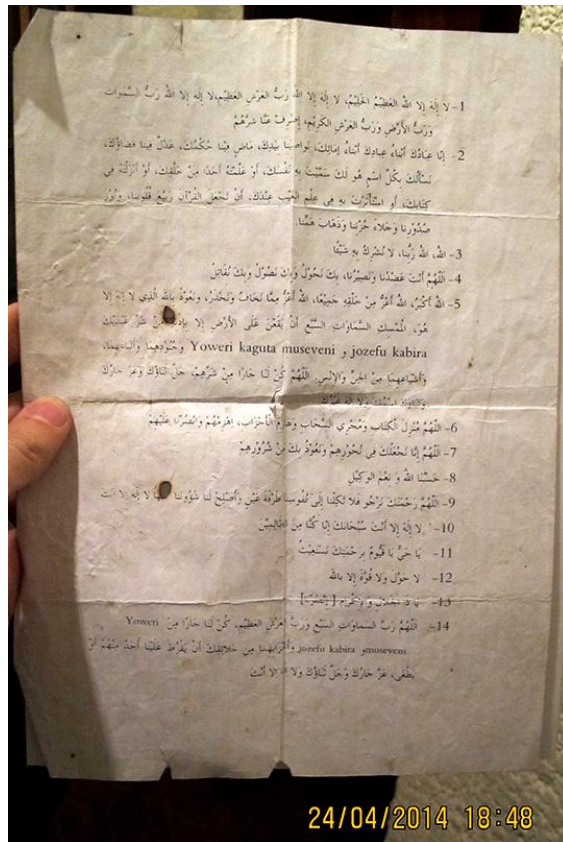 1- لا إِلَهَ إلا اللهُ العَظِيْمُ الحَلِيْمُ، لا إِلَهَ إلا اللهُ رَبُّ العَرْشِ العَظِيْمِ،لا إِلَهَ إلا اللهُ رَبُّ السَّموات
وَرَبُّ الأَرْضِ وَرَبُّ العَرْشِ الكَرِيْمِ، إِصْرِفْ عَنَّا شَرَّهُمْ
2- إنَّا عِبَادُكَ أَبْنَاءُ عِبادِكَ أَبْنَاءُ إمَائِكَ، نَواصِيْنا بِيَدِكَ، مَاضٍ فِيْنا حُكْمُكَ، عَدْلٌ فِينا قضاؤُكَ،
نَسأَلُكَ بِكُلِّ اسْمٍ هُوَ لَكَ سَمَّيْتَ بِهِ نَفْسَكَ، أَوْ عَلَّمْتَهُ أَحَدًا مِنْ خَلْقِكَ، أَوْ أَنْزَلْتَهُ فِي
كِتَابِكَ، أَوِ اسْتَأْثَرْتَ بِهِ فِي عِلْمِ الغَيْبِ عِنْدَكَ، أَنْ تَجْعَلَ القُرْآنَ رَبِيْعَ قُلُوبِنا، وَنُوْرَ
صُدُوْرِنا وَجَلاءَ حُزْنِنا وَذَهَابَ هَمِّنا.
3- اللهُ، اللهُ رَبُّنا، لا نُشْرِكُ بِهِ شَيْئًا
4- اللَّهُمَّ أَنْتَ عَضُدُنا وَنَصِيْرُنا، بِكَ نَحُوْلُ وَبِكَ نَصُوْلُ وَبِكَ نُقَاتِلُ
5- اللهُ أَكْبَرُ، اللهُ أَعَزُّ مِنْ خَلْقِهِ جَمِيْعًا، اللهُ أَعَزُّ مِمَّا نَخَافُ وَنَحْذَرُ، وَنَعُوْذُ بِاللهِ الَّذِي لا إِلَهَ إلا
هُوَ، المُمْسِكِ السَّمَاوَاتِ السَّبْعِ أَنْ يَقَعْنَ عَلَى الأَرْضِ إلا بِإِذْنِهِ مِنْ شَرِّ عَبْدَيْكَ
Yoweri kaguta museveni و jozefu kabira وَجُنُوْدِهِمَا وَأَتْبَاعِهِمَا،
وَأَشْيَاعِهِمَا مِنَ الجِنِّ وَالإنْسِ. اللَّهُمَّ كُنْ لَنَا جَارًا مِنْ شَرِّهِمْ، جَلَّ ثَنَاؤُكَ وَعَزَّ جَارُكَ
وَتَبَارَكَ اسْمُكَ وَلا إِلَهَ غَيْرُكَ
6- اللَّهُمَّ مُنْزِلَ الْكِتَابِ وَمُجْرِي السَّحَابِ وَهَازِمَ الْأَحْزَابِ، اِهْزِمْهُمْ وَانْصُرْنا عَلَيْهِمْ
7- اللَّهُمَّ إِنَّا نَجْعَلُكَ فِي نُحُوْرِهِمْ وَنَعُوْذُ بِكَ مِنْ شُرُوْرِهِمْ
8- حَسْبُنَا اللهُ وَ نِعْمَ الوَكِيْلِ
9- اللَّهُمَّ رَحْمَتَكَ نَرْجُو فَلا تَكِلْنا إِلَى نُفُوسِنا طَرْفَةَ عَيْنٍ وَأَصْلِحْ لَنا شُؤُوْنَنا لا إِلَهَ إلا أَنْتَ
10- لا إِلَهَ إلا أَنْتَ سُبْحَانَكَ إِنَّا كُنَّا مِنَ الظَّالِمِيْنَ
11- يَا حَيُّ يَا قَيُّومُ بِرَحْمَتِكَ نَسْتَغِيْثُ
12- لا حَوْلَ وَلا قُوَّةَ إلا بالله
13- يَا ذَا الجَلالِ وَ الإِكْرَامِ [ اِنْصُرْنَا]
14- اللَّهُمَّ رَبَّ السَّمَاوَاتِ السَّبْعِ وَرَبَّ العَرْشِ العَظِيْمِ، كُنْ لَنا جَارًا مِنْ Yoweri
museveniو jozefu kabira وَأَحْزَابِهِمَا مِن خَلائِقِكَ أَنْ يَفْرُطَ عَلَيْنا أَحَدٌ مِنْهُمْ أَوْ
يَطْغَى، عَزَّ جَارُكَ وَجَلَّ ثَنَاؤُكَ وَلا إِلَهَ إلا أَنْتَ
24/04/2014 18:48